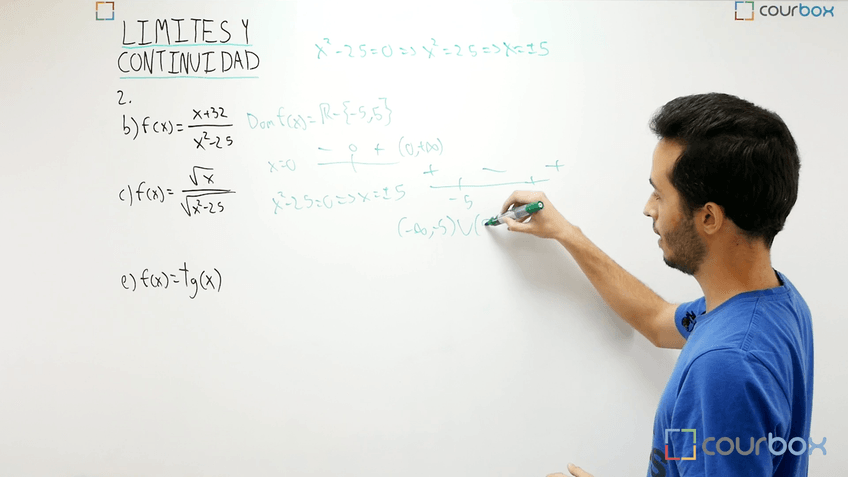 courbox
LIMITES Y
CONTINUIDAD
x²-25=0=>x²=25=>x=±5
2.
b) f(x)= x+32 / x²-25
Dom f(x)=ℝ-{-5,5}
- 0 + (0,+∞)
x=0
c) f(x)= √x / √x²-25
x²-25=0=>x=±5
+ - +
-5
(-∞,-5)∪(
e) f(x)=tg(x)
courbox